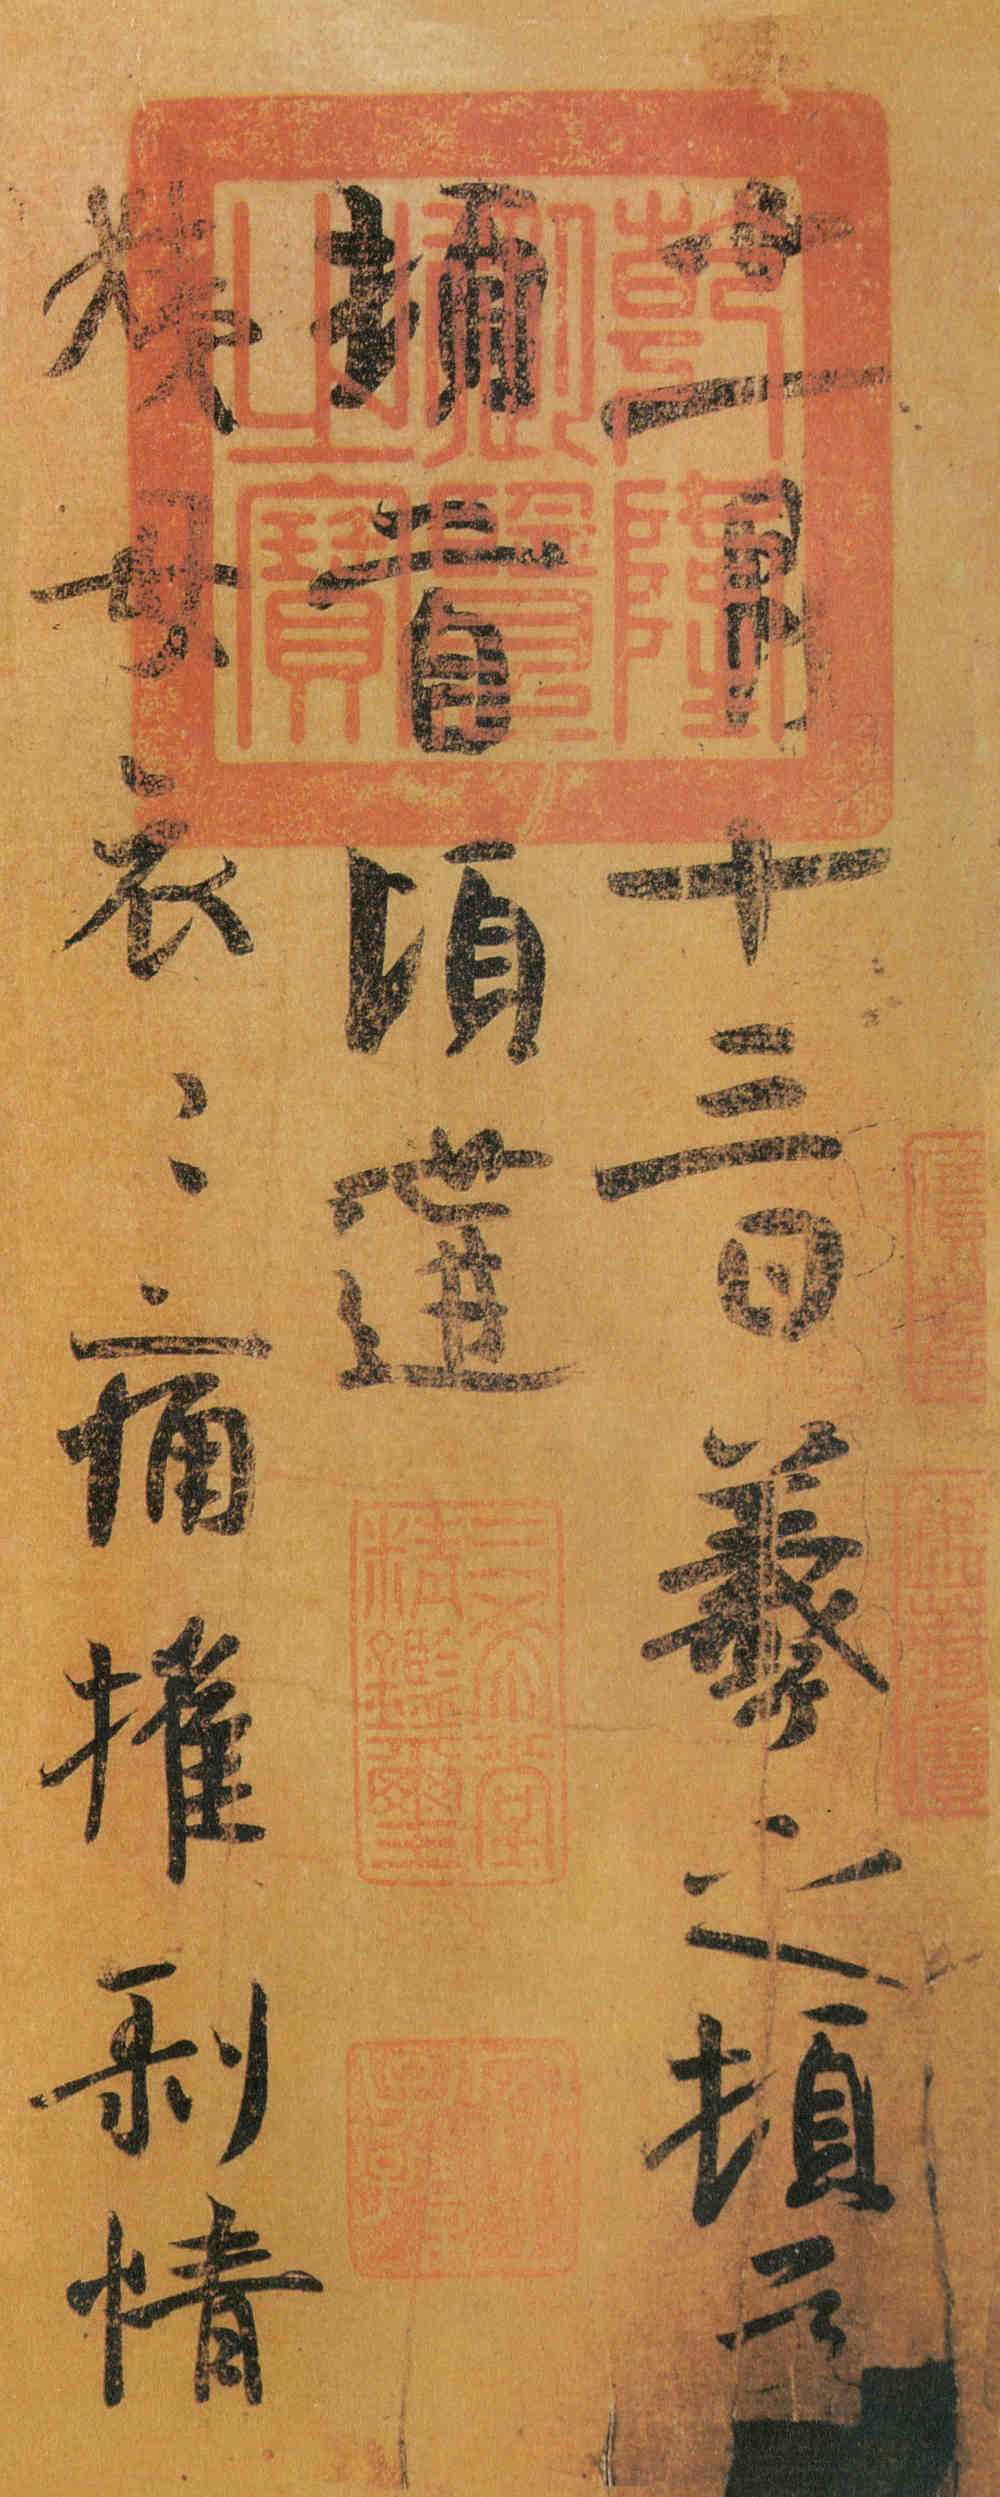 十一月十三日羲之頓首
頓首頃遘
姨母哀〻痛摧剝情
乾隆御覽之寶
三希堂精鑑璽
宜子孫